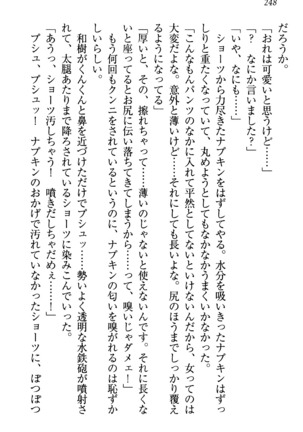 248
だろうか。
「おれは可愛いと思うけど……」
「なにか言いました？」
「いや、なにも……」
ショーツから力尽きたナプキンをはずしてやる。水分を吸いきったナプキンはずっ
しりと重たくなっていて、丸めようとしてもなかなかうまくいかなかった。
「こんなもんパンツのなかに入れて平然としてないといけないんだから、女ってのは
大変だよな。意外と薄いけど……それにしても長いよな。尻のほうまでしっかり覆え
るようになってる」
「厚いと、その、擦れちゃって……薄いのじゃないと使えないんです。それに長くな
いと座ってるとお尻に伝い落ちてきてしまうから……って、嗅いじゃダメェ！」
もう何回もクンニをされているというのに、ナプキンの匂いを嗅がれるのは恥ずか
しいらしい。
和樹がくんくんと鼻を近づけただけでプシュッ……勢いよく透明な水鉄砲が噴射さ
れて、太腿あたりまで降ろされているショーツに染みこんでいく。
「あうっ、ショーツ汚しちゃう！　噴きだしちゃだめぇ……！」
プシュ、プシュッ！　ナプキンのおかげで汚れていなかったショーツに、ぽつぽつ